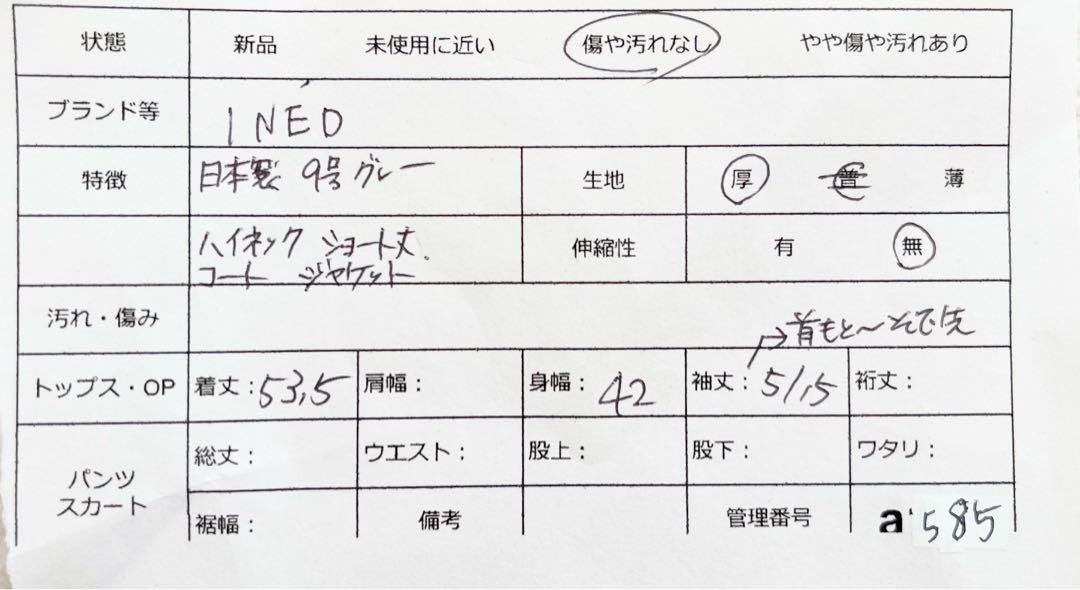 状態 新品 未使用に近い 傷や汚れなし やや傷や汚れあり
ブランド等 INED
特徴 日本製 9号 グレー 生地 厚 普 薄
ハイネック ショート丈 伸縮性 有 無
コート ジャケット
汚れ・傷み
→首もと〜そで先
トップス・OP 着丈:53,5 肩幅: 身幅:42 袖丈:51,5 裄丈:
パンツ スカート 総丈: ウエスト: 股上: 股下: ワタリ:
裾幅: 備考 管理番号 a 585